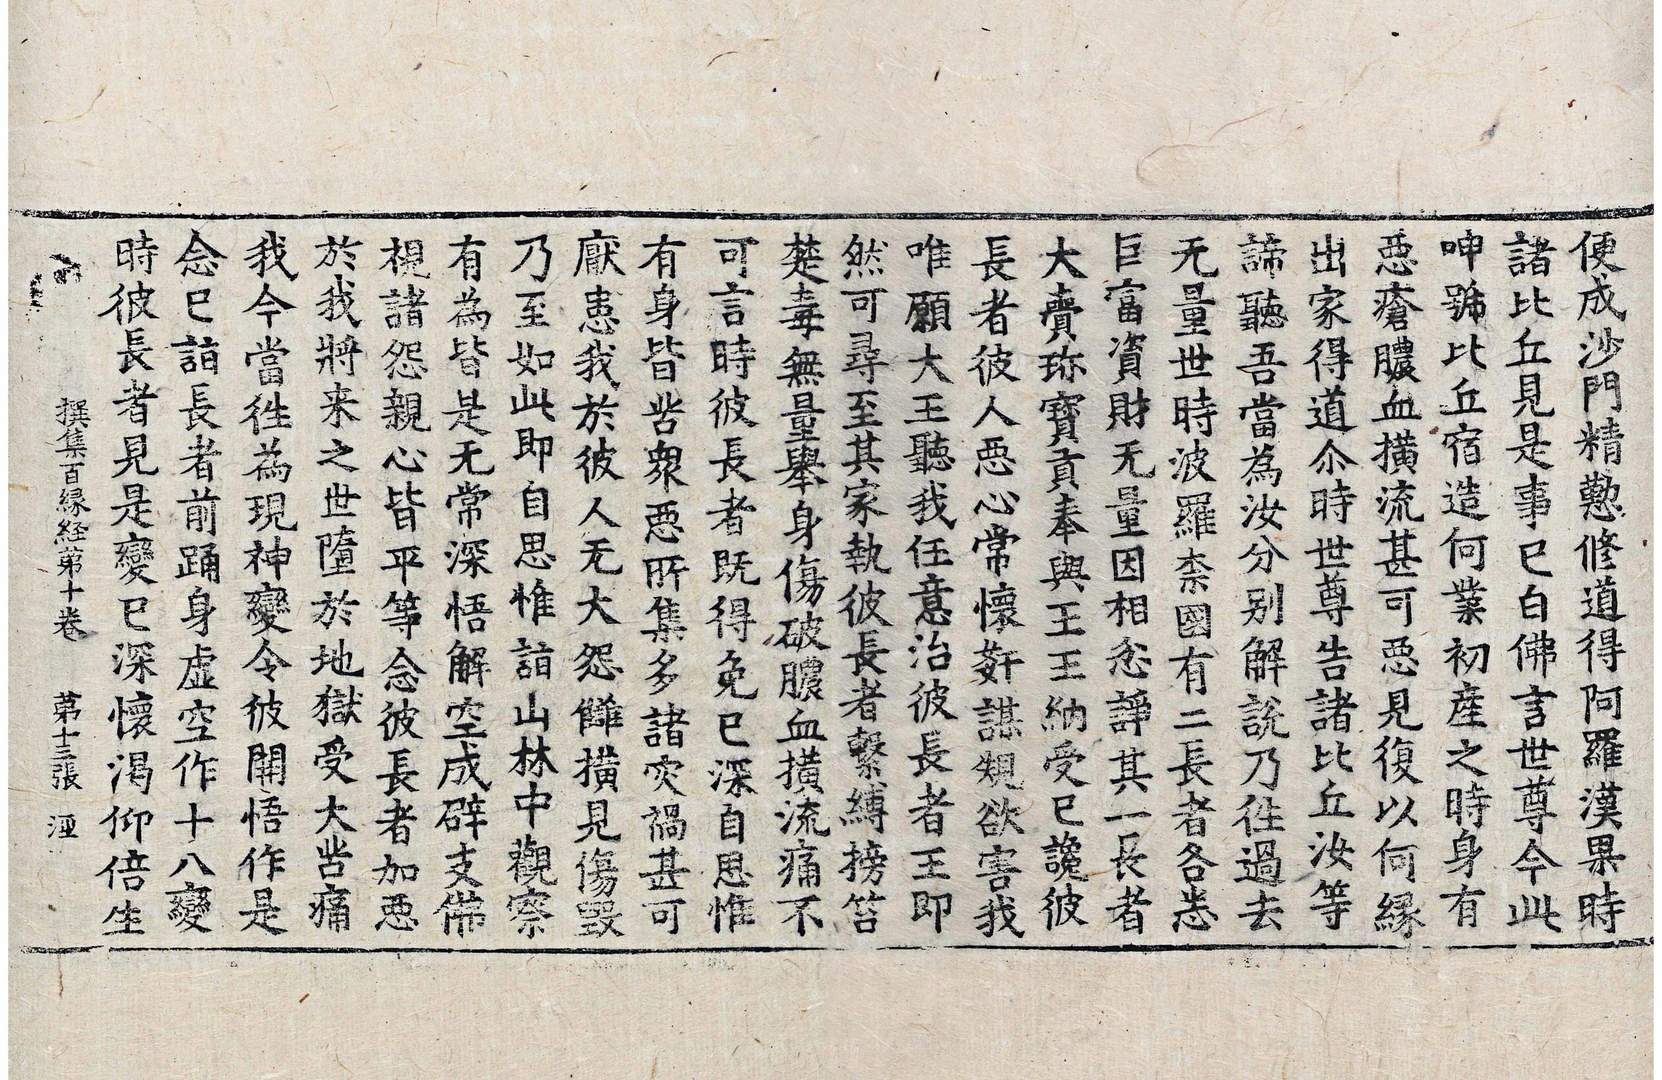 便成沙門精懃修道得阿羅漢果時
諸比丘見是事已白佛言世尊今此
呻號比丘宿造何業初産之時身有
惡瘡膿血横流甚可惡見復以何縁
出家得道尒時世尊告諸比丘汝等
諦聽吾當為汝分别解説乃徃過去
无量世時波羅柰國有二長者各悉
巨富資財无量因相忿諍其一長者
大賷珎寶貢奉與王王納受已讒彼
長者彼人惡心常懷姧謀規欲害我
唯願大王聽我任意治彼長者王即
然可尋至其家執彼長者繫縛搒笞
楚毒無量舉身傷破膿血横流痛不
可言時彼長者既得免已深自思惟
有身皆苦衆惡所集多諸灾禍甚可
厭患我於彼人无大怨讎横見傷毀
乃至如此即自思惟詣山林中觀察
有為皆是无常深悟解空成辟支佛
視諸怨親心皆平等念彼長者加惡
於我將来之世墮於地獄受大苦痛
我今當徃為現神變令彼開悟作是
念已詣長者前踊身虚空作十八變
時彼長者見是變已深懷渴仰倍生
撰集百縁経第十卷 第十三張 涇